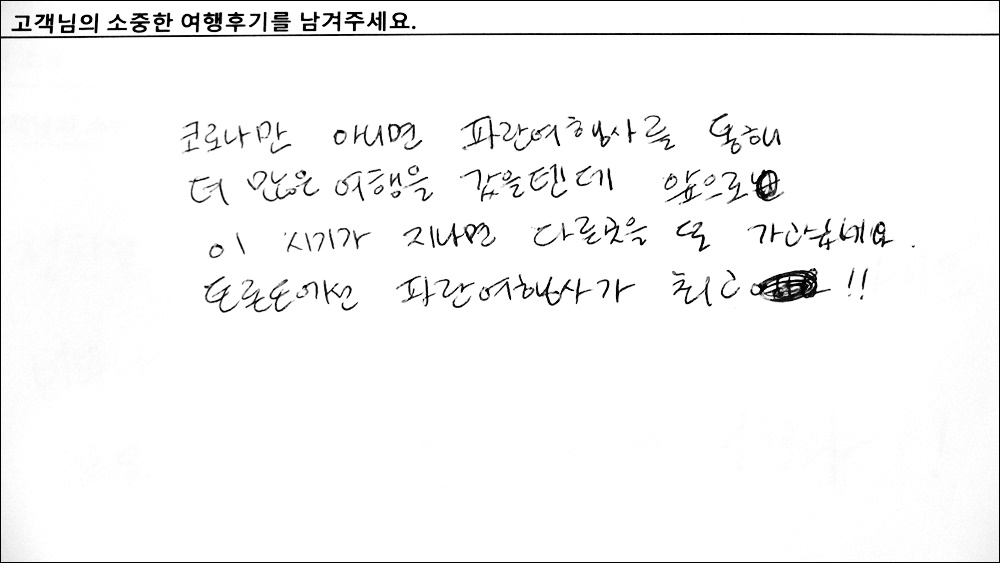 고객님의 소중한 여행후기를 남겨주세요.
코로나만 아니면 파란여행사를 통해
더 많은 여행을 갔을텐데 앞으로
이 시기가 지나면 다른곳을 또 가고싶네요.
토론토에선 파란여행사가 최고!!